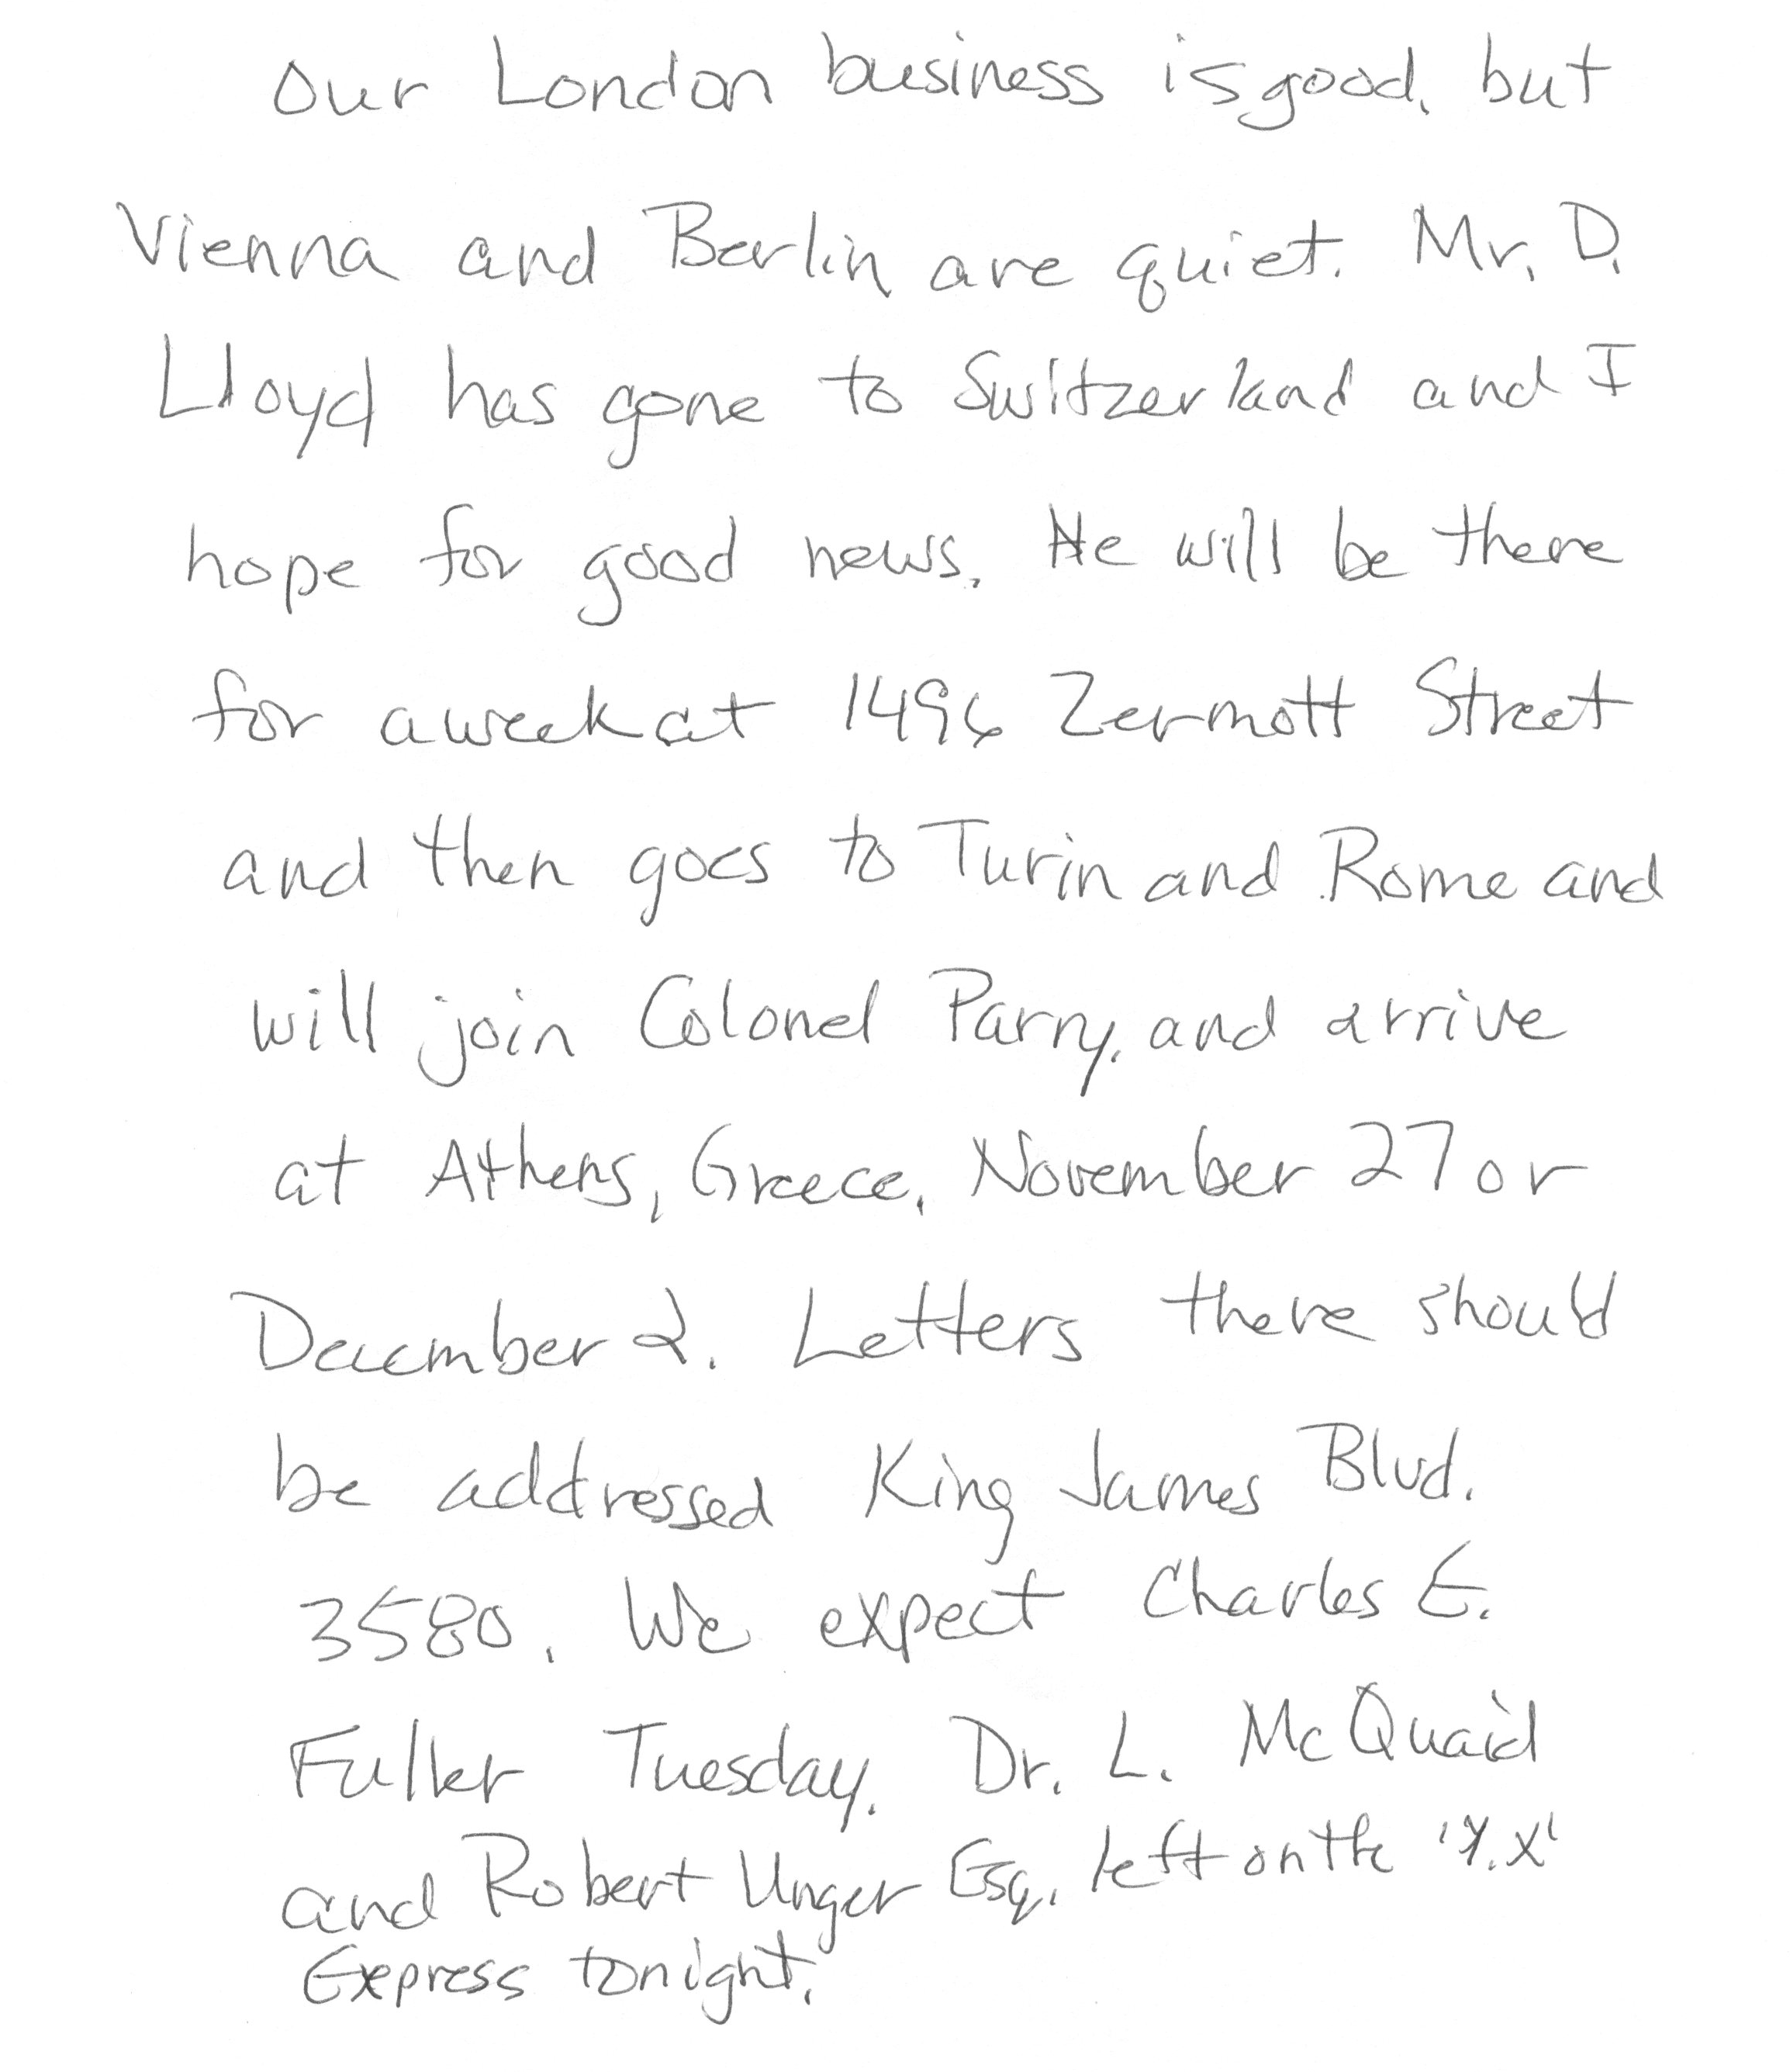 Our London business is good, but
Vienna and Berlin are quiet. Mr. D.
Lloyd has gone to Switzerland and I
hope for good news. He will be there
for a week at 1496 Zermott Street
and then goes to Turin and Rome and
will join Colonel Parry, and arrive
at Athens, Greece, November 27 or
December 2. Letters there should
be addressed King James Blvd.
3580. We expect Charles E.
Fuller Tuesday. Dr. L. McQuaid
and Robert Unger Esq. left on the 'Y.X'
Express tonight.